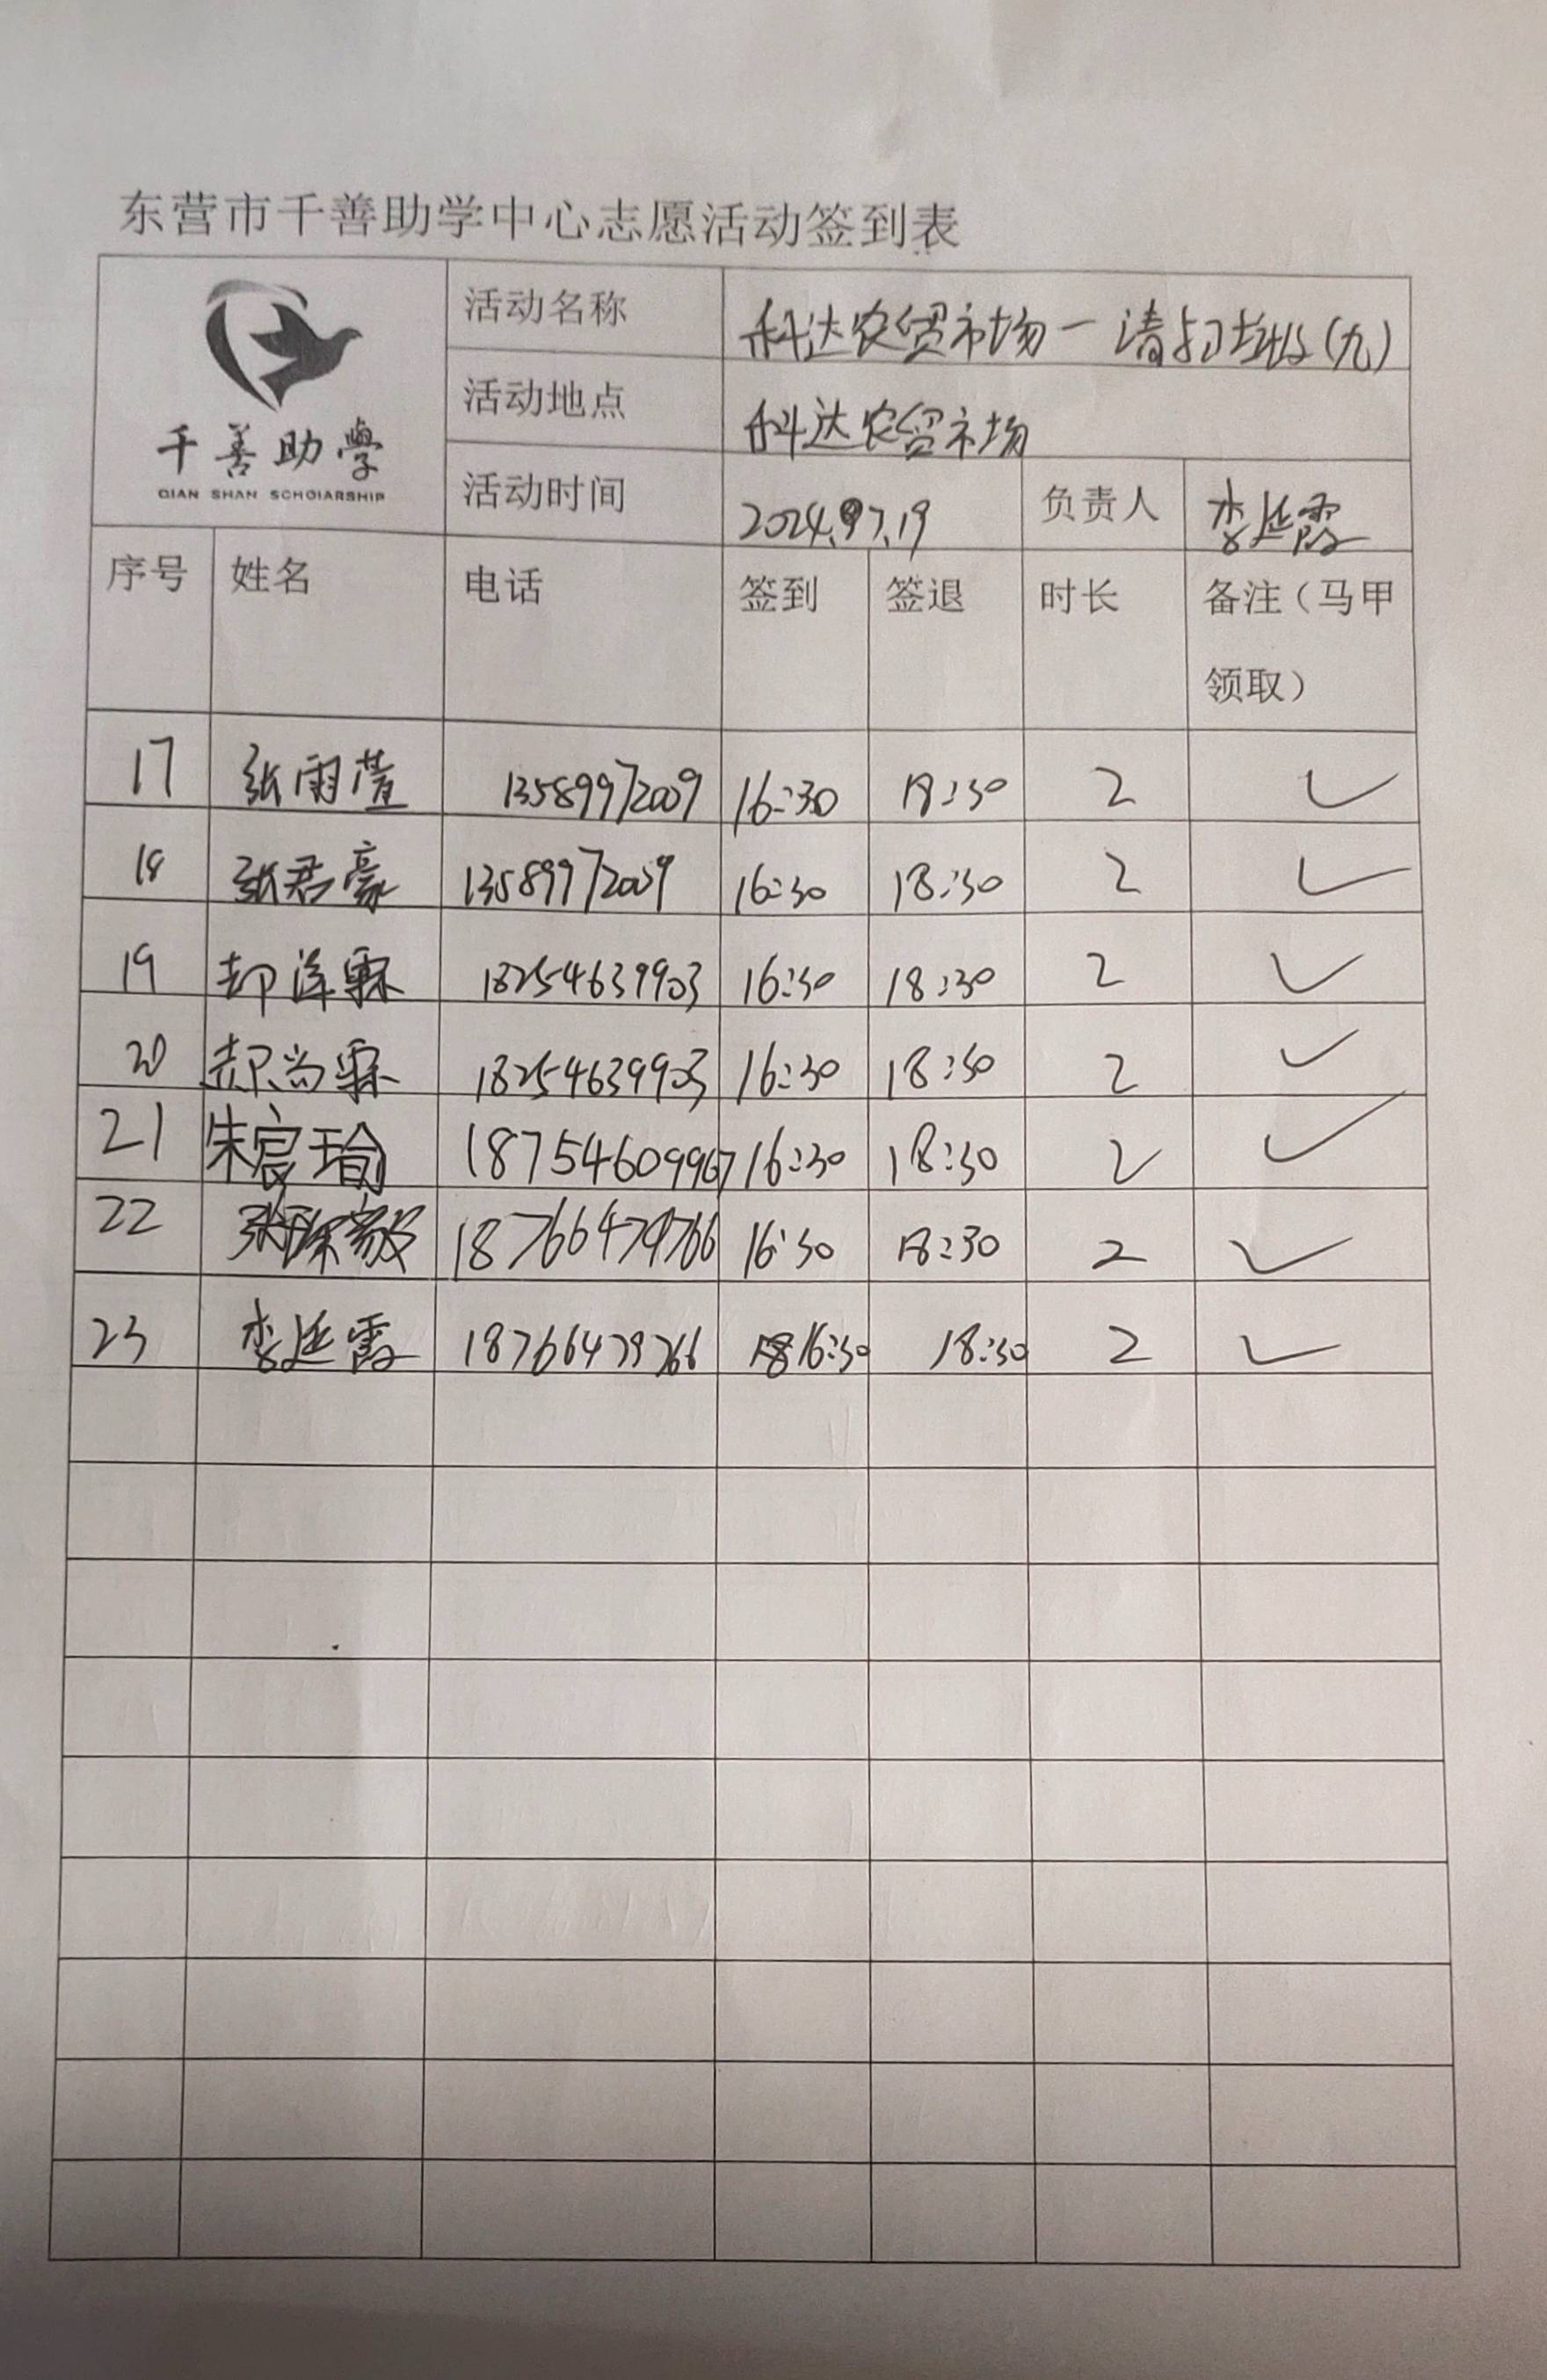 东营市千善助学中心志愿活动签到表
千善助學
QIAN SHAN SCHOIARSHIP
活动名称 科达农贸市场一清扫垃圾(九)
活动地点 科达农贸市场
活动时间 2024.07.19 负责人 李延霞
序号 姓名 电话 签到 签退 时长 备注（马甲领取）
17 张雨萱 13589972009 16:30 18:30 2 ✓
18 张君豪 13589972009 16:30 18:30 2 ✓
19 泽霖 18254639903 16:30 18:30 2 ✓
20 郝尚霖 18254639903 16:30 18:30 2 ✓
21 朱宸瑜 18754609967 16:30 18:30 2 ✓
22 张 18766479766 16:30 18:30 2 ✓
23 李延霞 18766479766 16:30 18:30 2 ✓